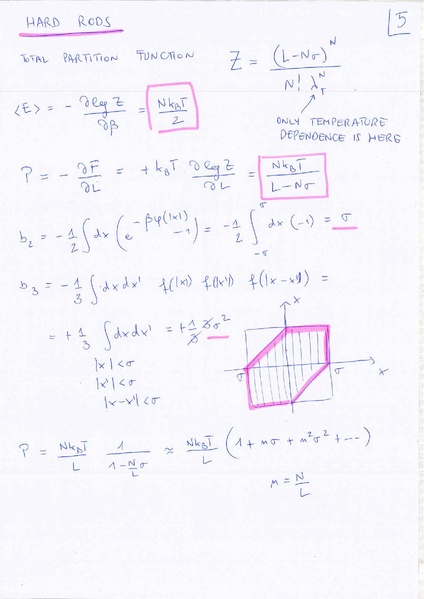 HARD RODS
5
TOTAL PARTITION FUNCTION Z = (L-Nσ)^N / (N! λ_T^N)
ONLY TEMPERATURE
DEPENDENCE IS HERE
⟨E⟩ = - ∂log Z / ∂β = Nk_BT / 2
P = - ∂F / ∂L = + k_BT ∂log Z / ∂L = Nk_BT / (L-Nσ)
b_2 = -1/2 ∫ dx (e^{-βφ(|x|)} -1) = -1/2 ∫_{-σ}^{σ} dx (-1) = σ
b_3 = -1/3 ∫ dx dx' f(|x|) f(|x'|) f(|x-x'|) =
= +1/3 ∫ dx dx' = +1/3 3σ^2
|x|<σ
|x'|<σ
|x-x'|<σ
x
σ
σ
x
P = Nk_BT / L 1 / (1 - N/L σ) ≈ Nk_BT / L (1 + nσ + n^2σ^2 + ---)
n = N / L